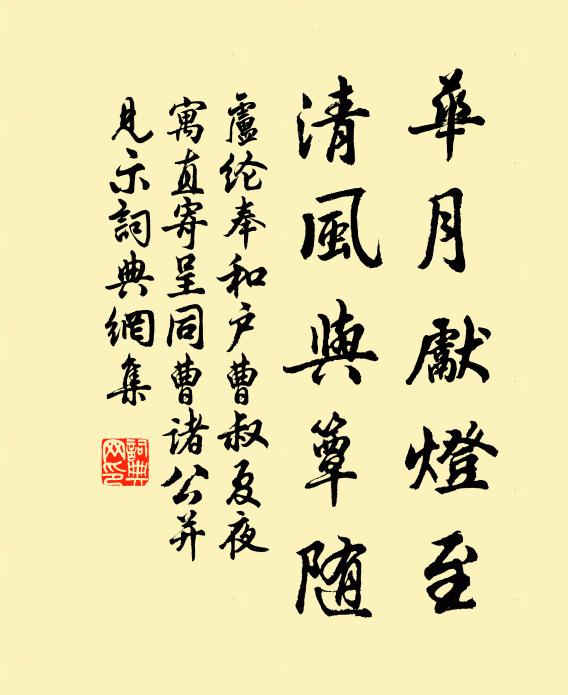 華月獻燈至
清風與簟随
盧纶奉和户曹叔夏夜
寓直寄呈同曹诸公并
見示詞典網集
詞典网印